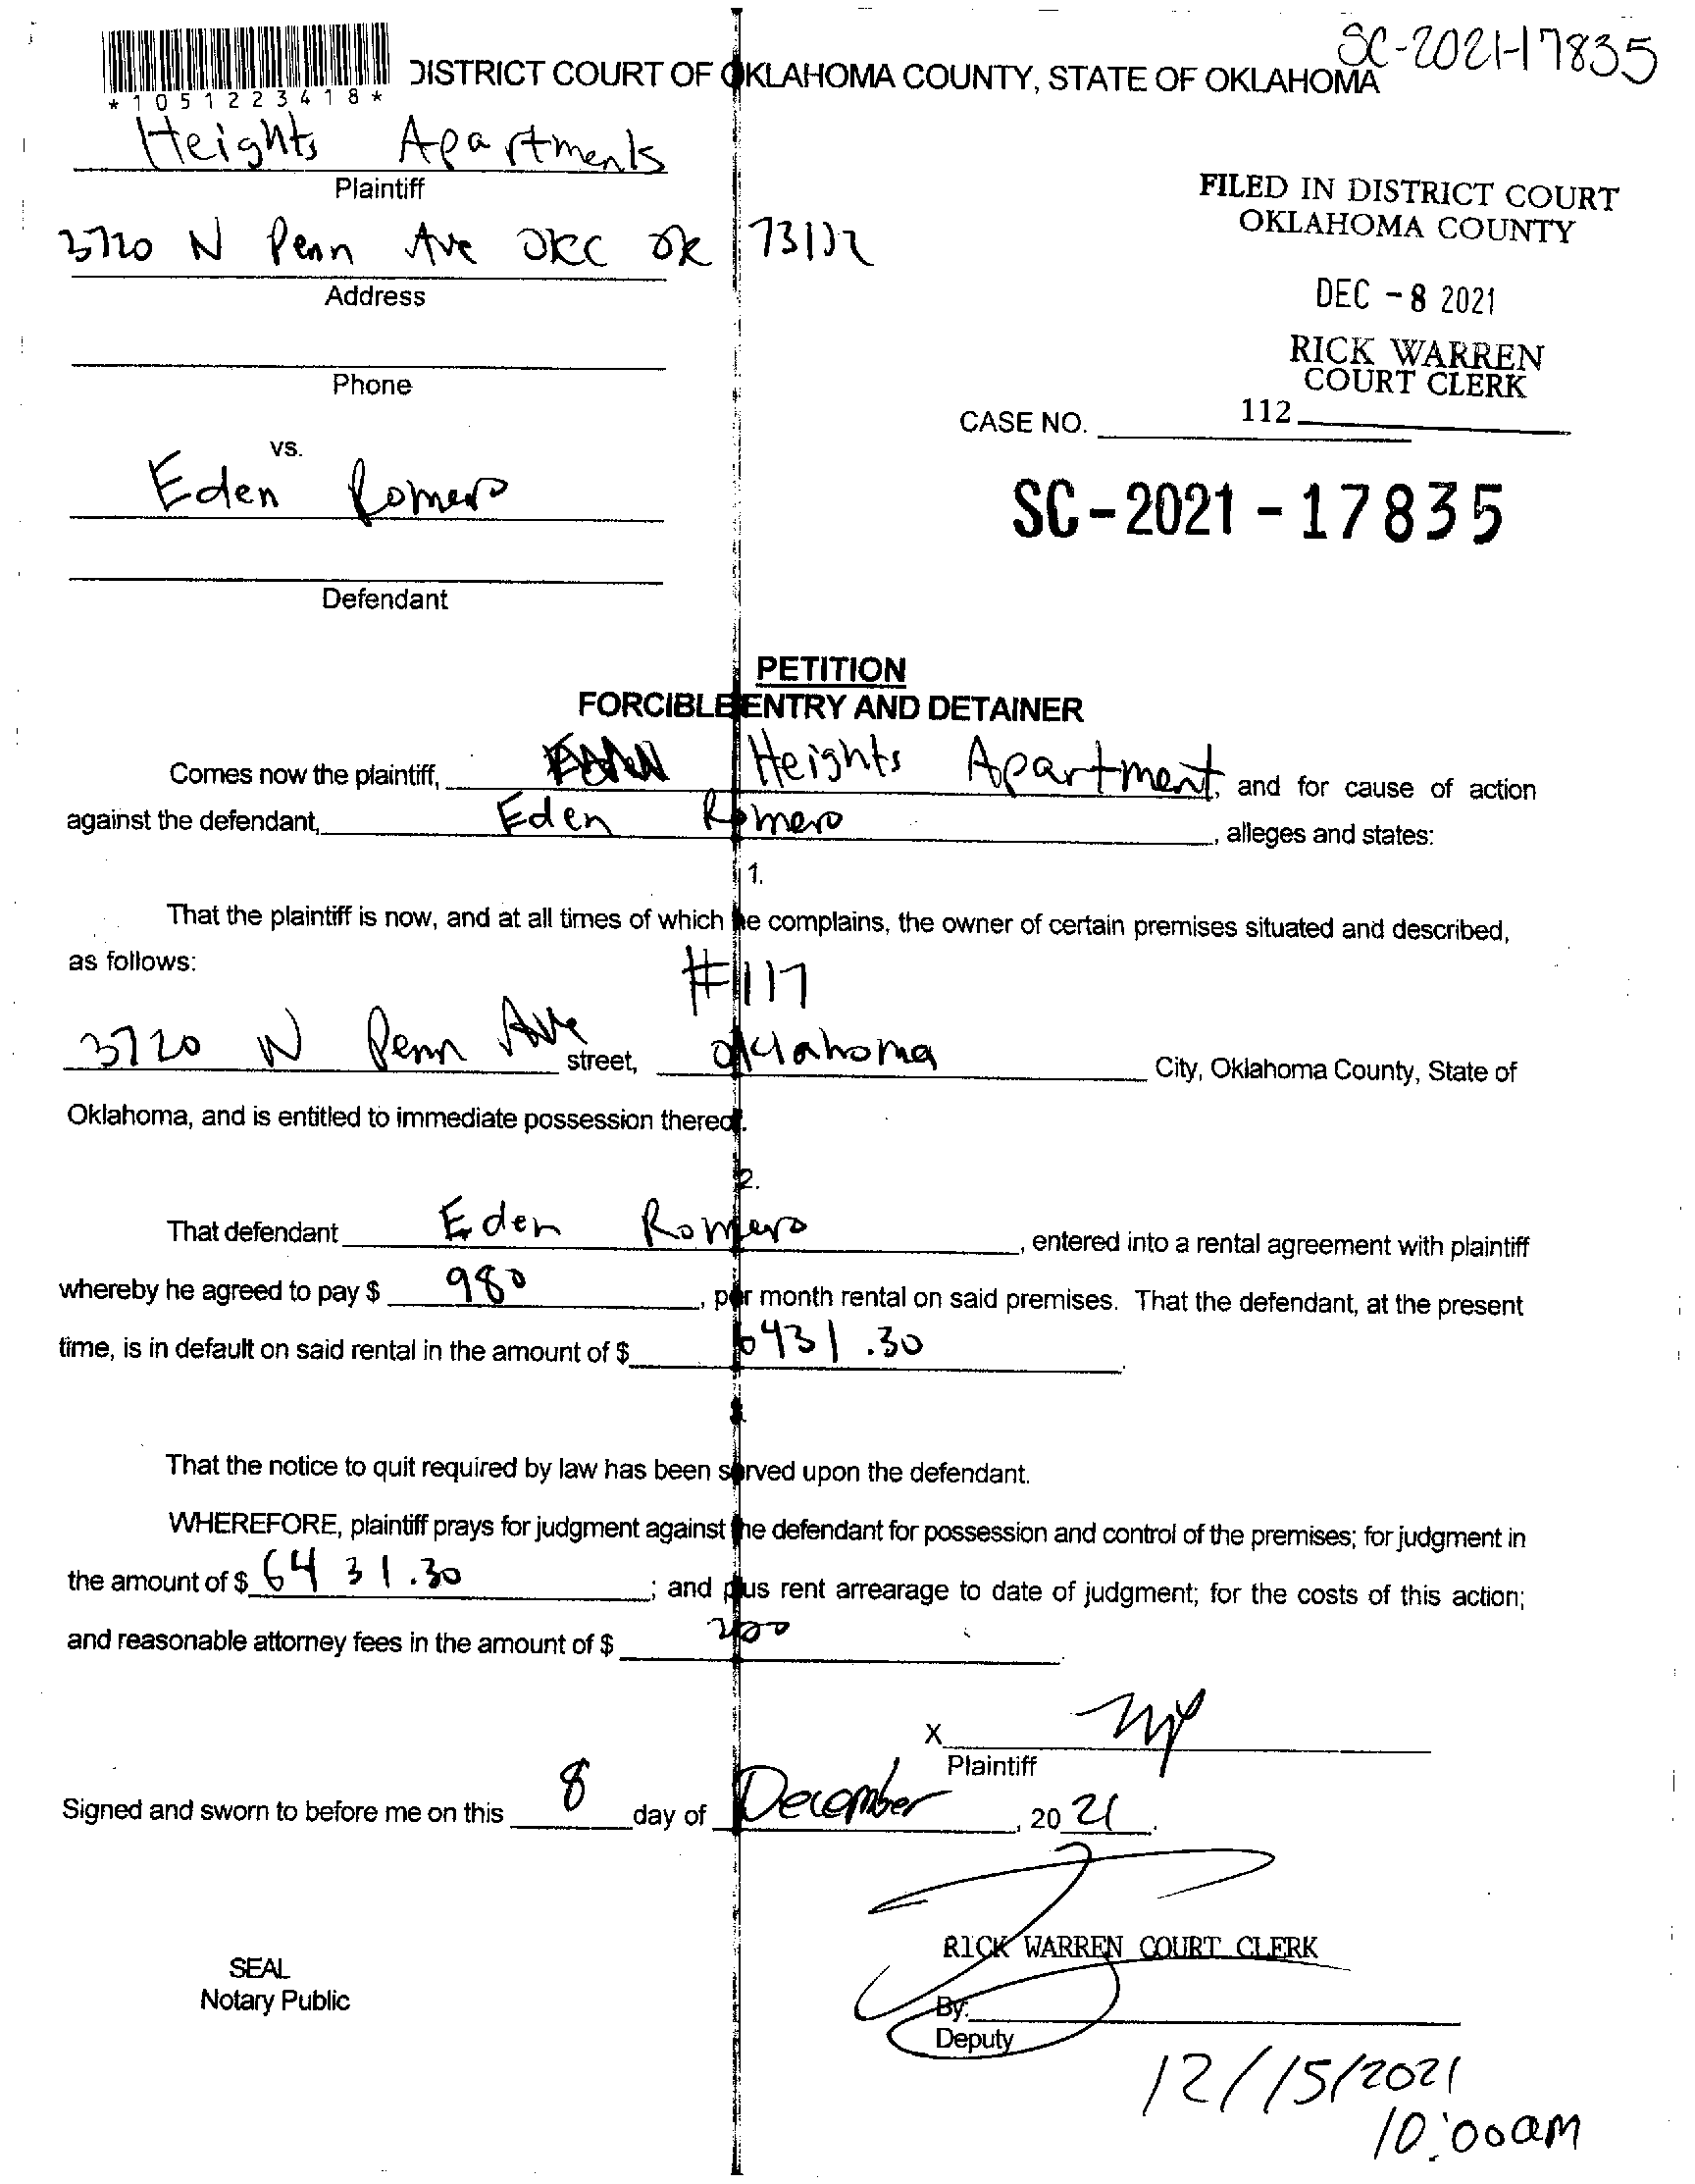 SC-2021-17835
DISTRICT COURT OF OKLAHOMA COUNTY, STATE OF OKLAHOMA
*1051223418*
Heights Apartments
Plaintiff
FILED IN DISTRICT COURT
OKLAHOMA COUNTY
3720 N Penn Ave OKC OK 73112
Address
DEC - 8 2021
RICK WARREN
COURT CLERK
Phone
112
CASE NO.
vs.
Eden Romero
SC-2021-17835
Defendant
PETITION
FORCIBLE ENTRY AND DETAINER
Comes now the plaintiff, Heights Apartment, and for cause of action
against the defendant, Eden Romero, alleges and states:
1.
That the plaintiff is now, and at all times of which he complains, the owner of certain premises situated and described,
as follows:
#117
3720 N Penn Ave street, oklahoma City, Oklahoma County, State of
Oklahoma, and is entitled to immediate possession thereof.
2.
That defendant Eden Romero, entered into a rental agreement with plaintiff
whereby he agreed to pay $ 980, per month rental on said premises. That the defendant, at the present
time, is in default on said rental in the amount of $ 6431.30.
That the notice to quit required by law has been served upon the defendant.
WHEREFORE, plaintiff prays for judgment against the defendant for possession and control of the premises; for judgment in
the amount of $ 6431.30; and plus rent arrearage to date of judgment; for the costs of this action;
and reasonable attorney fees in the amount of $ 200
X
Plaintiff
Signed and sworn to before me on this 8 day of December, 2021.
RICK WARREN COURT CLERK
SEAL
Notary Public
By:
Deputy
12/15/2021
10:00am